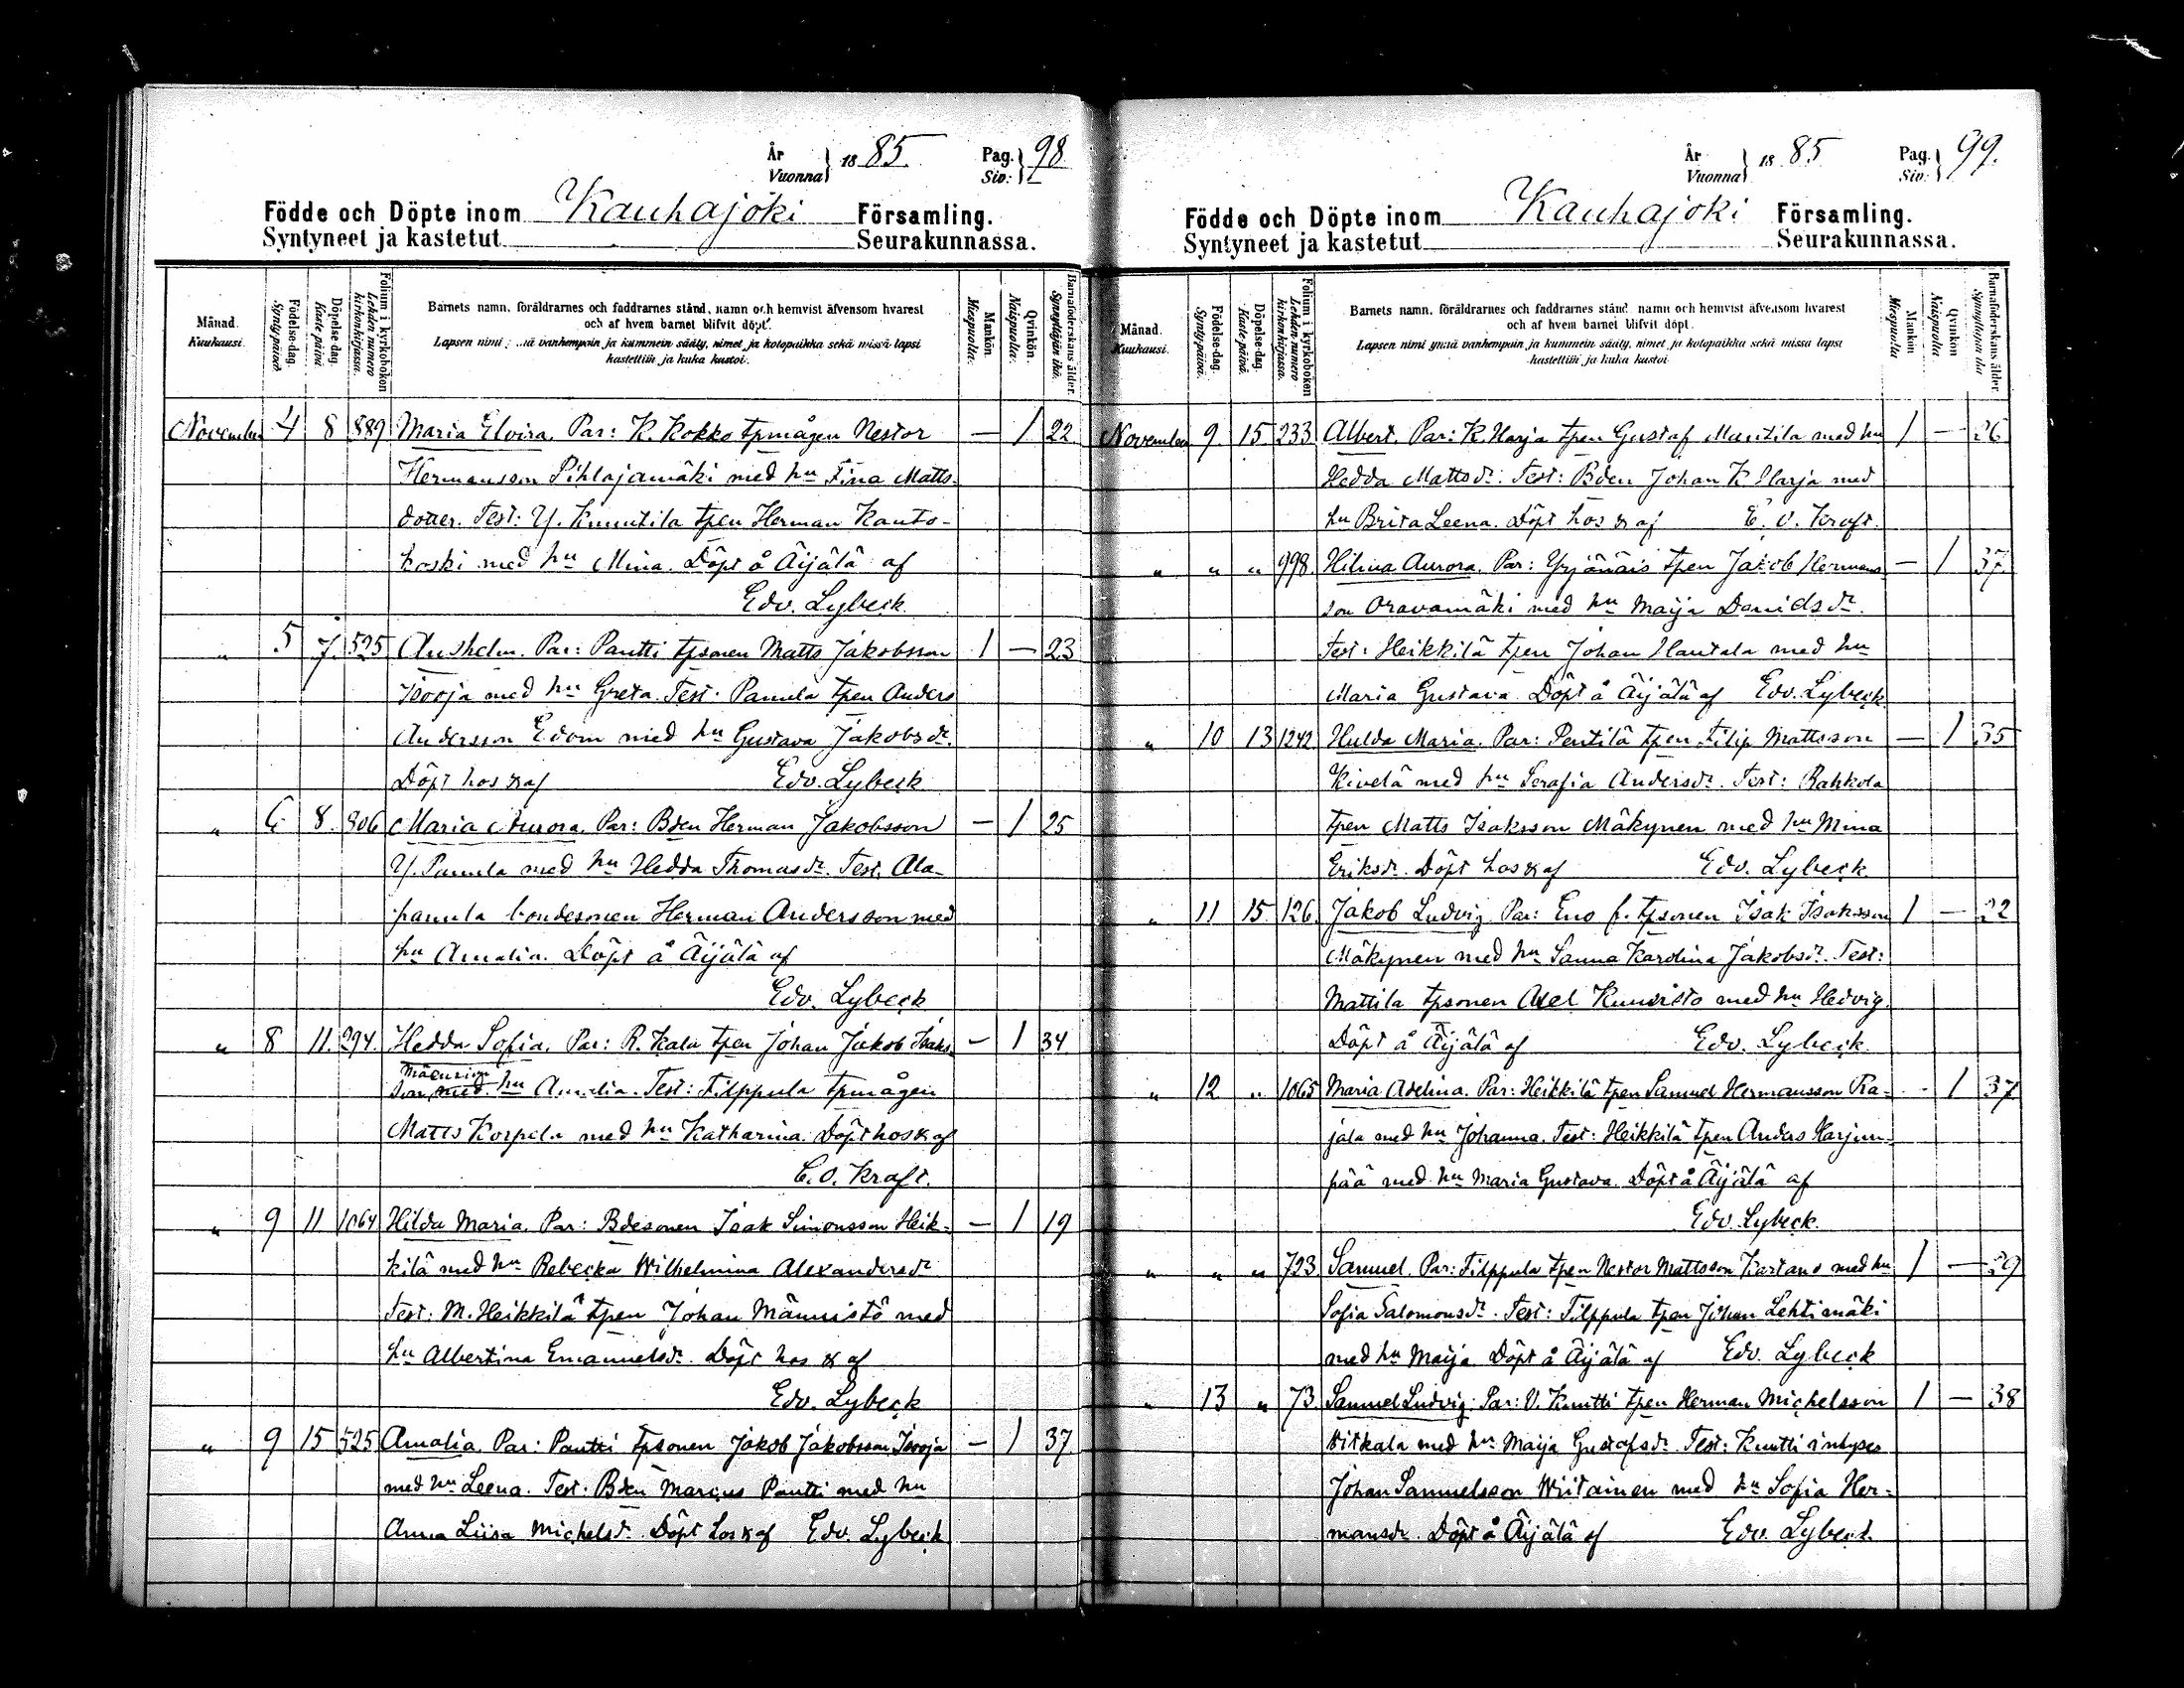 År
Vuonna 1885. Pag.
Siv: 98
Födde och Döpte inom Kauhajoki Församling.
Syntyneet ja kastetut Seurakunnassa.
Månad. Kuukausi.
Födelse-dag. Syntypäivä.
Döpelse dag. Kaste päivä.
Folium i kyrkoboken Lehden numero kirkonkirjassa.
Barnets namn, föräldrarnes och faddrarnes stånd, namn och hemvist äfvensom hvarest
och af hvem barnet blifvit döpt.
Lapsen nimi vanhempain ja kummein sääty, nimet ja kotopaikka sekä missä lapsi
kastettiin ja kuka kastoi.
Mankön. Miespuolia.
Qvinkön. Naispuolia.
Barnaföderskans ålder. Synnyttäjän ikä.
November 4 8 889 Maria Elvira. Par: K. Kokko tpmågen Nestor — 1 22
Hermansson Pihlajamäki med hu Fina Matts-
dotter. Test: Y. Knuutila tpen Herman Kauto-
koski med hu Mina. Döpt å Äijälä af
Edv. Lybeck
" 5 7. 525 Anshelm. Par: Pantti tpsonen Matts Jakobsson 1 — 23
Isooja med hu Greta. Test: Panula tpen Anders
Andersson Edom med hu Gustava Jakobsdr.
Döpt hos & af Edv. Lybeck
" 6 8. 806 Maria Aurora. Par: Bden Herman Jakobsson — 1 25
Y. Panula med hu Hedda Thomasdr. Test. Ala-
panula bondesonen Herman Andersson med
hu Amalia. Döpt å Äijälä af
Edv. Lybeck
" 8 11. 294. Hedda Sofia. Par: R. Kala tpen Johan Jakob Isaks- — 1 34
son med hu Amalia. Test: Filppula tpmågen
Matts Korpela med hu Katharina. Döpt hos & af
C. O. Kraft.
" 9 11 1064 Hilda Maria. Par: Bdesonen Isak Simonsson Heik- — 1 19
kilä med hu Rebecka Wilhelmina Alexandersdr
Test: M. Heikkilä tpen Johan Männistö med
hu Albertina Emanuelsdr. Döpt hos & af
Edv. Lybeck
" 9 15 525 Amalia. Par: Pantti tpsonen Jakob Jakobsson Isooja — 1 37
med hu Leena. Test: Bden Marcus Pantti med hu
Anna Liisa Michelsdr. Döpt hos & af Edv. Lybeck
År
Vuonna 1885 Pag.
Siv: 99.
Födde och Döpte inom Kauhajoki Församling.
Syntyneet ja kastetut Seurakunnassa.
Månad. Kuukausi.
Födelse-dag. Synty-päivä.
Döpelse-dag. Kaste-päivä.
Folium i kyrkoboken Lehden numero kirkonkirjassa.
Barnets namn, föräldrarnes och faddrarnes stånd namn och hemvist äfvensom hvarest
och af hvem barnet blifvit döpt.
Lapsen nimi ynnä vanhempain ja kummein sääty, nimet ja kotopaikka sekä missä lapsi
kastettiin ja kuka kastoi
Mankön Miespuolia
Qvinkön Naispuolia
Barnaföderskans ålder. Synnyttäjän ikä
November 9. 15. 233 Albert. Par: K. Harja tpen Gustaf Mantila med hu 1 — 26
Hedda Mattsdr. Test: Bden Johan K Harja med
hu Brita Leena. Döpt hos & af C. O. Kraft.
" " " 998. Hilma Aurora. Par: Yrjänäis tpen Jakob Hermans- — 1 37.
son Oravamäki med hu Maija Davidsdr.
Test: Heikkilä tpen Johan Hautala med hu
Maria Gustava. Döpt å Äijälä af Edv. Lybeck
" 10 13 1242 Hulda Maria. Par: Pentilä tpen Filip Mattsson — 1 35
Kivelä med hu Serafia Andersdr. Test: Rahkola
tpen Matts Isaksson Mäkynen med hu Mina
Eriksdr. Döpt hos & af Edv. Lybeck
" 11 15. 126. Jakob Ludvig. Par: Eno f. tpsonen Isak Isaksson 1 — 22
Mäkynen med hu Sanna Karolina Jakobsdr. Test:
Mattila tpsonen Axel Kuusisto med hu Hedvig.
Döpt å Äijälä af Edv. Lybeck.
" 12 " 1065 Maria Adelina. Par: Heikkilä tpen Samuel Hermansson Ra- - 1 37
jala med hu Johanna. Test: Heikkilä tpen Anders Harjun-
pää med hu Maria Gustava. Döpt å Äijälä af
Edv. Lybeck.
" " " 723. Samuel. Par: Filppula tpen Nestor Mattsson Kartano med hu 1 — 29
Sofia Salomonsdr. Test: Filppula tpen Johan Lehtimäki
med hu Maija. Döpt å Äijälä af Edv. Lybeck
" 13 " 73. Samuel Ludvig. Par: V. Knutti tpen Herman Michelsson 1 — 38
Witkala med hu Maija Gustafsdr. Test: Knutti inhyses
Johan Samuelsson Wiitainen med hu Sofia Her-
mansdr. Döpt å Äijälä af Edv. Lybeck.